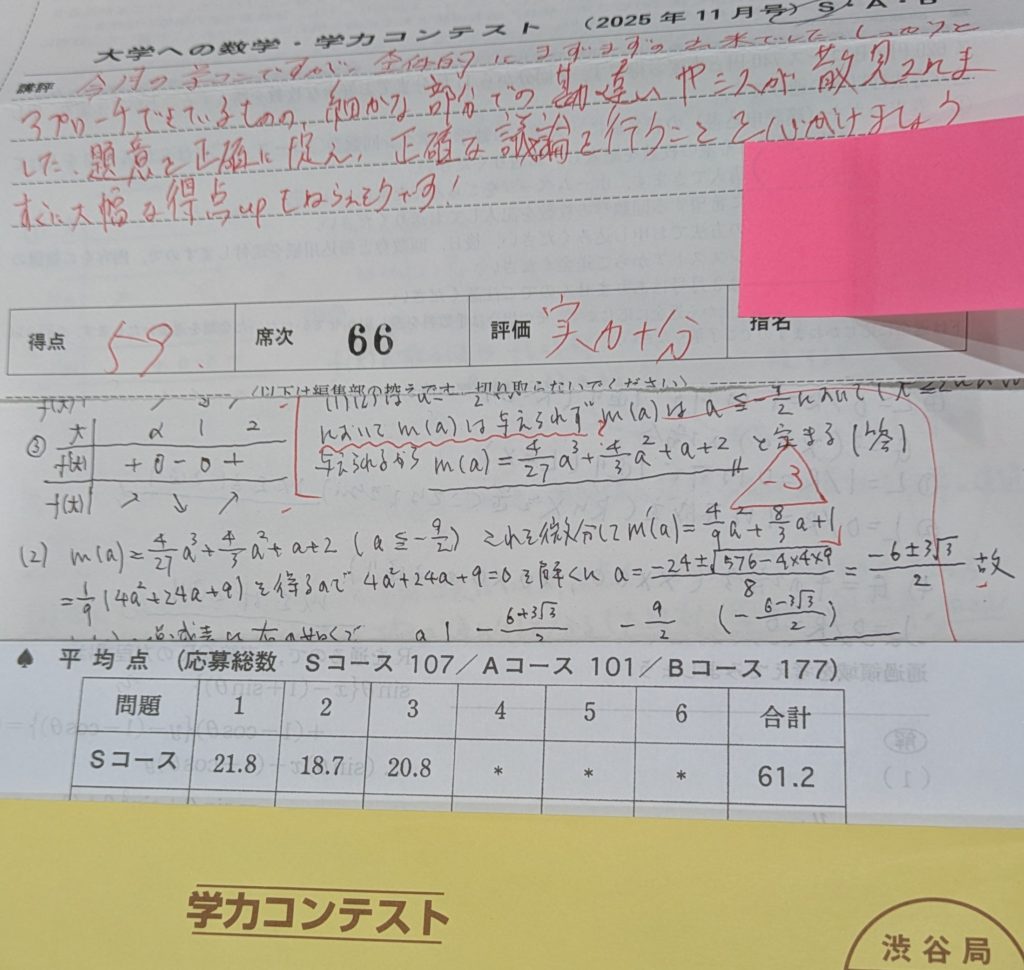 大学への数学・学力コンテスト (2025年11月号) S・A・B
講評 今月の学コンですが、全体的にまずまずの出来でした。しっかりと
アプローチできているものの、細かな部分での勘違いやミスが散見されま
した。題意を正確に捉え、正確な議論を行うことを心がけましょう
すぐに大幅な得点upもねらえそうです!
得点 59. 席次 66 評価 実力十分 指名
(以下は編集部の控えです。切り取らないでください)
f(t)
において m(a)は与えられず m(a)は a≦-9/2において
③ t α 1 2
f'(t) + 0 - 0 +
f(t) ↗ ↘ ↗
与えられるから m(a)=4/27a³+4/3a²+a+2 と定まる(答)
-3
(2) m(a)=4/27a³+4/3a²+a+2 (a≦-9/2) これを微分してm'(a)=4/9a²+8/3a+1
=1/9(4a²+24a+9)を得るので 4a²+24a+9=0を解くと a=(-24±√(576-4×4×9))/8=(-6±3√3)/2 故
a -(6+3√3)/2 -9/2 (-(6-3√3)/2)
♠ 平均点 (応募総数 Sコース 107/Aコース 101/Bコース 177)
問題 1 2 3 4 5 6 合計
Sコース 21.8 18.7 20.8 * * * 61.2
学力コンテスト
渋谷局